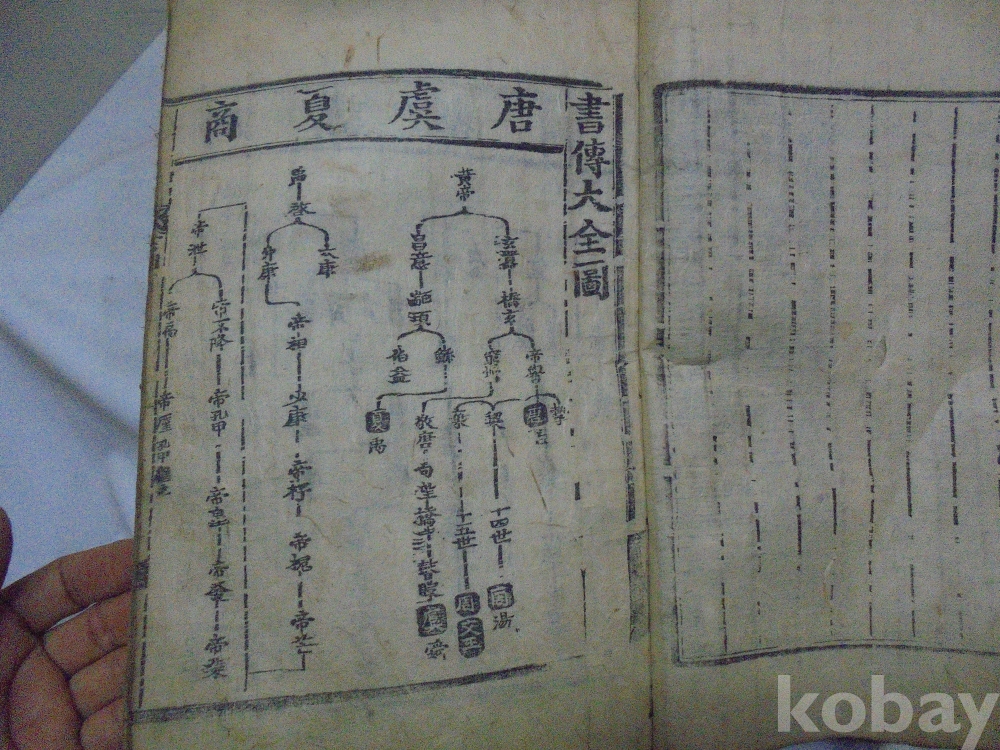 書傳大全圖
唐虞夏商
黃帝
昌意
玄囂
顓頊
橋玄
鯀
帝嚳
伯益
夏禹
敬康
句望
橋牛
瞽瞍
虞舜
棄
十五世
周文王
契
十四世
商湯
摯
啓
太康
帝相
少康
帝杼
帝槐
帝芒
帝泄
帝不降
帝孔甲
帝皐
帝發
帝桀
帝扃
帝厪
kobay